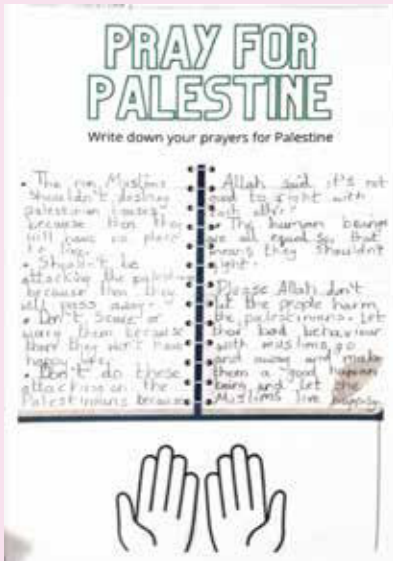 PRAY FOR
PALESTINE
Write down your prayers for Palestine
• The non Muslims
shouldn't destroy
palestinian houses
because then they
will have no place
to live.
• Should't be
attacking the
because then they
will pass away.
• Don't scare or
them because
they won't have
happy life.
• Don't do these
attacking on the
Palestinians because
• Allah said it's not
good to fight with
each other.
• The human beings
are all equal so that
means they shouldn't
fight.
• Please Allah don't
let the people harm
the palestinians. Let
their bad behaviour
with muslims go
and away and make
them a good human
being and let the
Muslims live happily